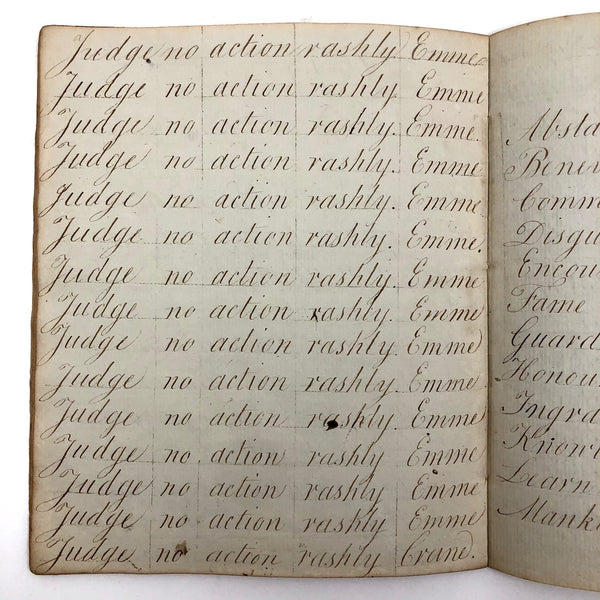 Judge no action rashly. Emme
Judge no action rashly. Emme
Judge no action rashly. Emme.
Judge no action rashly. Emme
Judge no action rashly. Emme.
Judge no action rashly. Emme.
Judge no action rashly. Emme
Judge no action rashly. Emme
Judge no action rashly. Emme
Judge no action rashly. Emme
Judge no action rashly. Emme
Judge no action rashly Emme
Judge no action rashly Emme
Judge no action rashly Emme
Judge no action rashly Crane.
Absta
Benev
Comm
Disgu
Encou
Fame
Guard
Honou
Ingra
Knowl
Learn
Mank